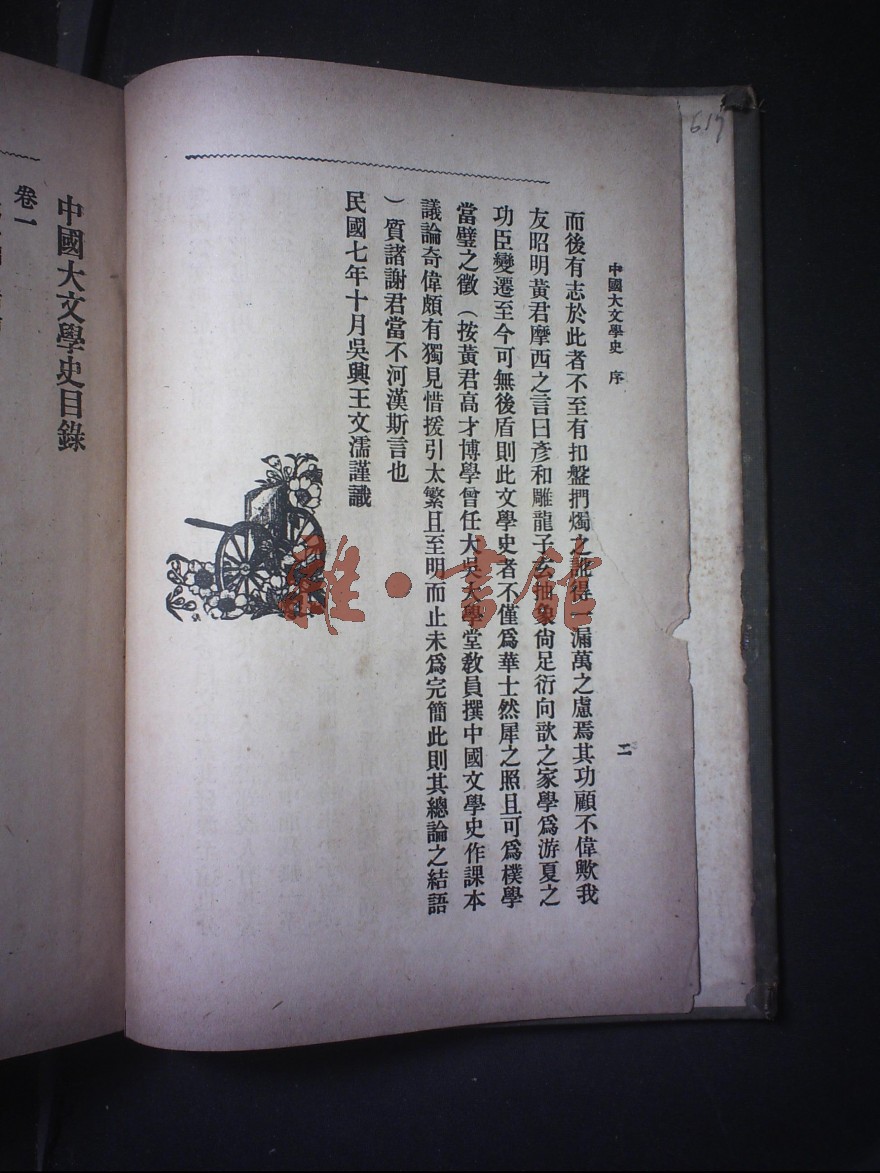 中國大文學史 序
二
而後有志於此者不至有扣盤捫燭之訛得一漏萬之慮焉其功顧不偉歟我
友昭明黃君摩西之言曰彥和雕龍子玄抽象尙足衍向歆之家學爲游夏之
功臣變遷至今可無後盾則此文學史者不僅爲華士然犀之照且可爲樸學
當璧之徵（按黃君高才博學曾任大吳大學堂敎員撰中國文學史作課本
議論奇偉頗有獨見惜援引太繁且至明而止未爲完簡此則其總論之結語
）質諸謝君當不河漢斯言也
民國七年十月吳興王文濡謹識
中國大文學史目錄
卷一
617
雜·書館